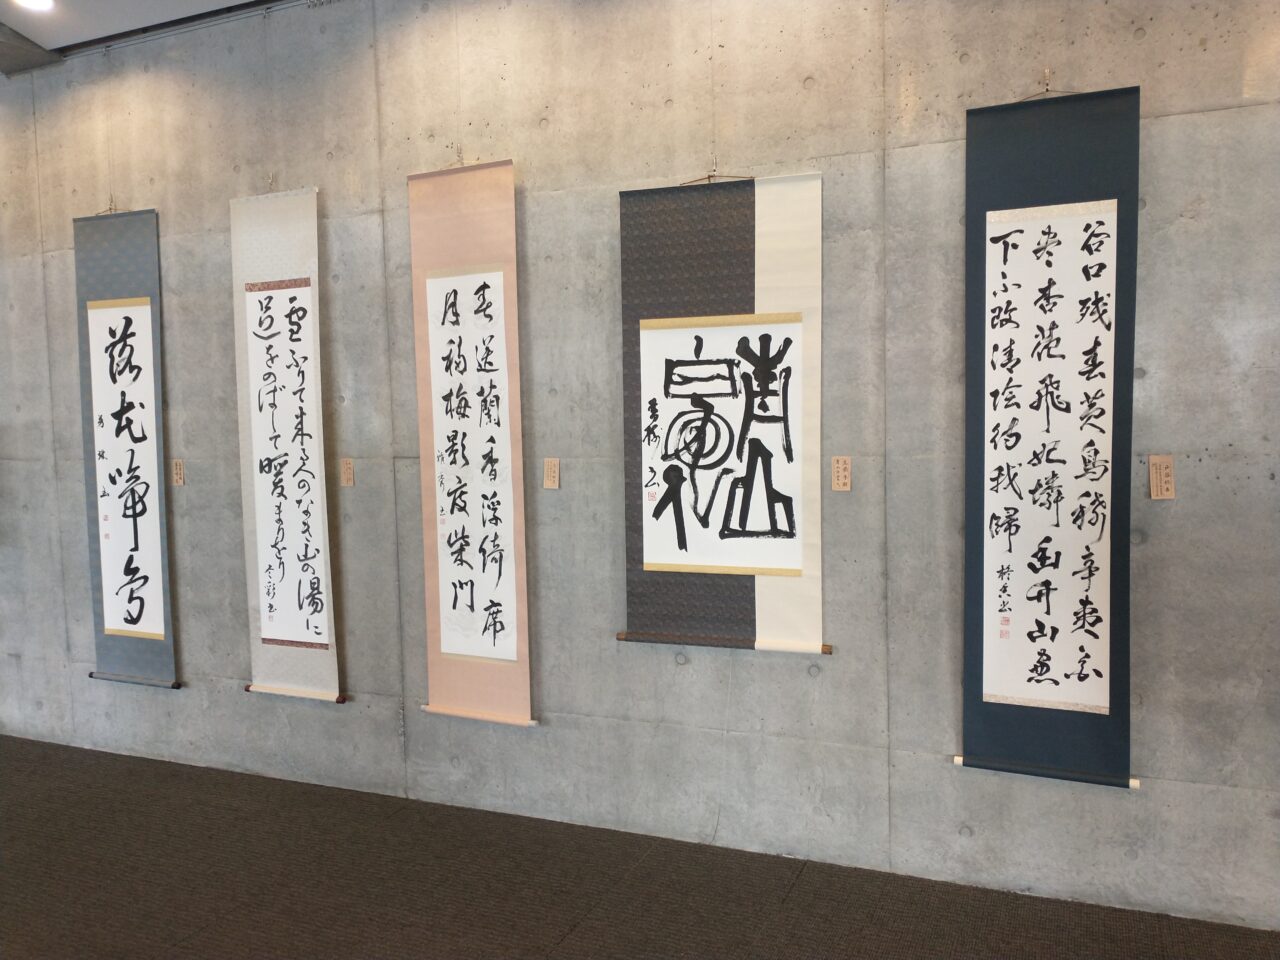 谷口残春黄鳥稀辛夷花
尽杏花飛始憐幽竹山窓
下不改清陰待我歸
青山
白雲人
春送蘭香浮綺席
月移梅影度柴門
雪ふりて来る人のなき山の湯に
足をのばして暖まりをり
落花啼鳥